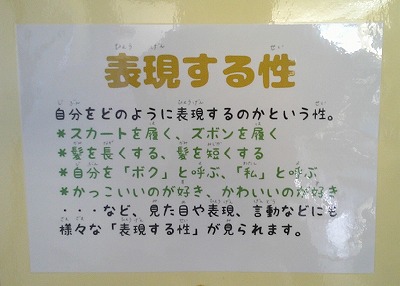 表現する性
自分をどのように表現するのかという性。
*スカートを履く、ズボンを履く
*髪を長くする、髪を短くする
*自分を「ボク」と呼ぶ、「私」と呼ぶ
*かっこいいのが好き、かわいいのが好き
・・・など、見た目や表現、言動などにも
様々な「表現する性」が見られます。